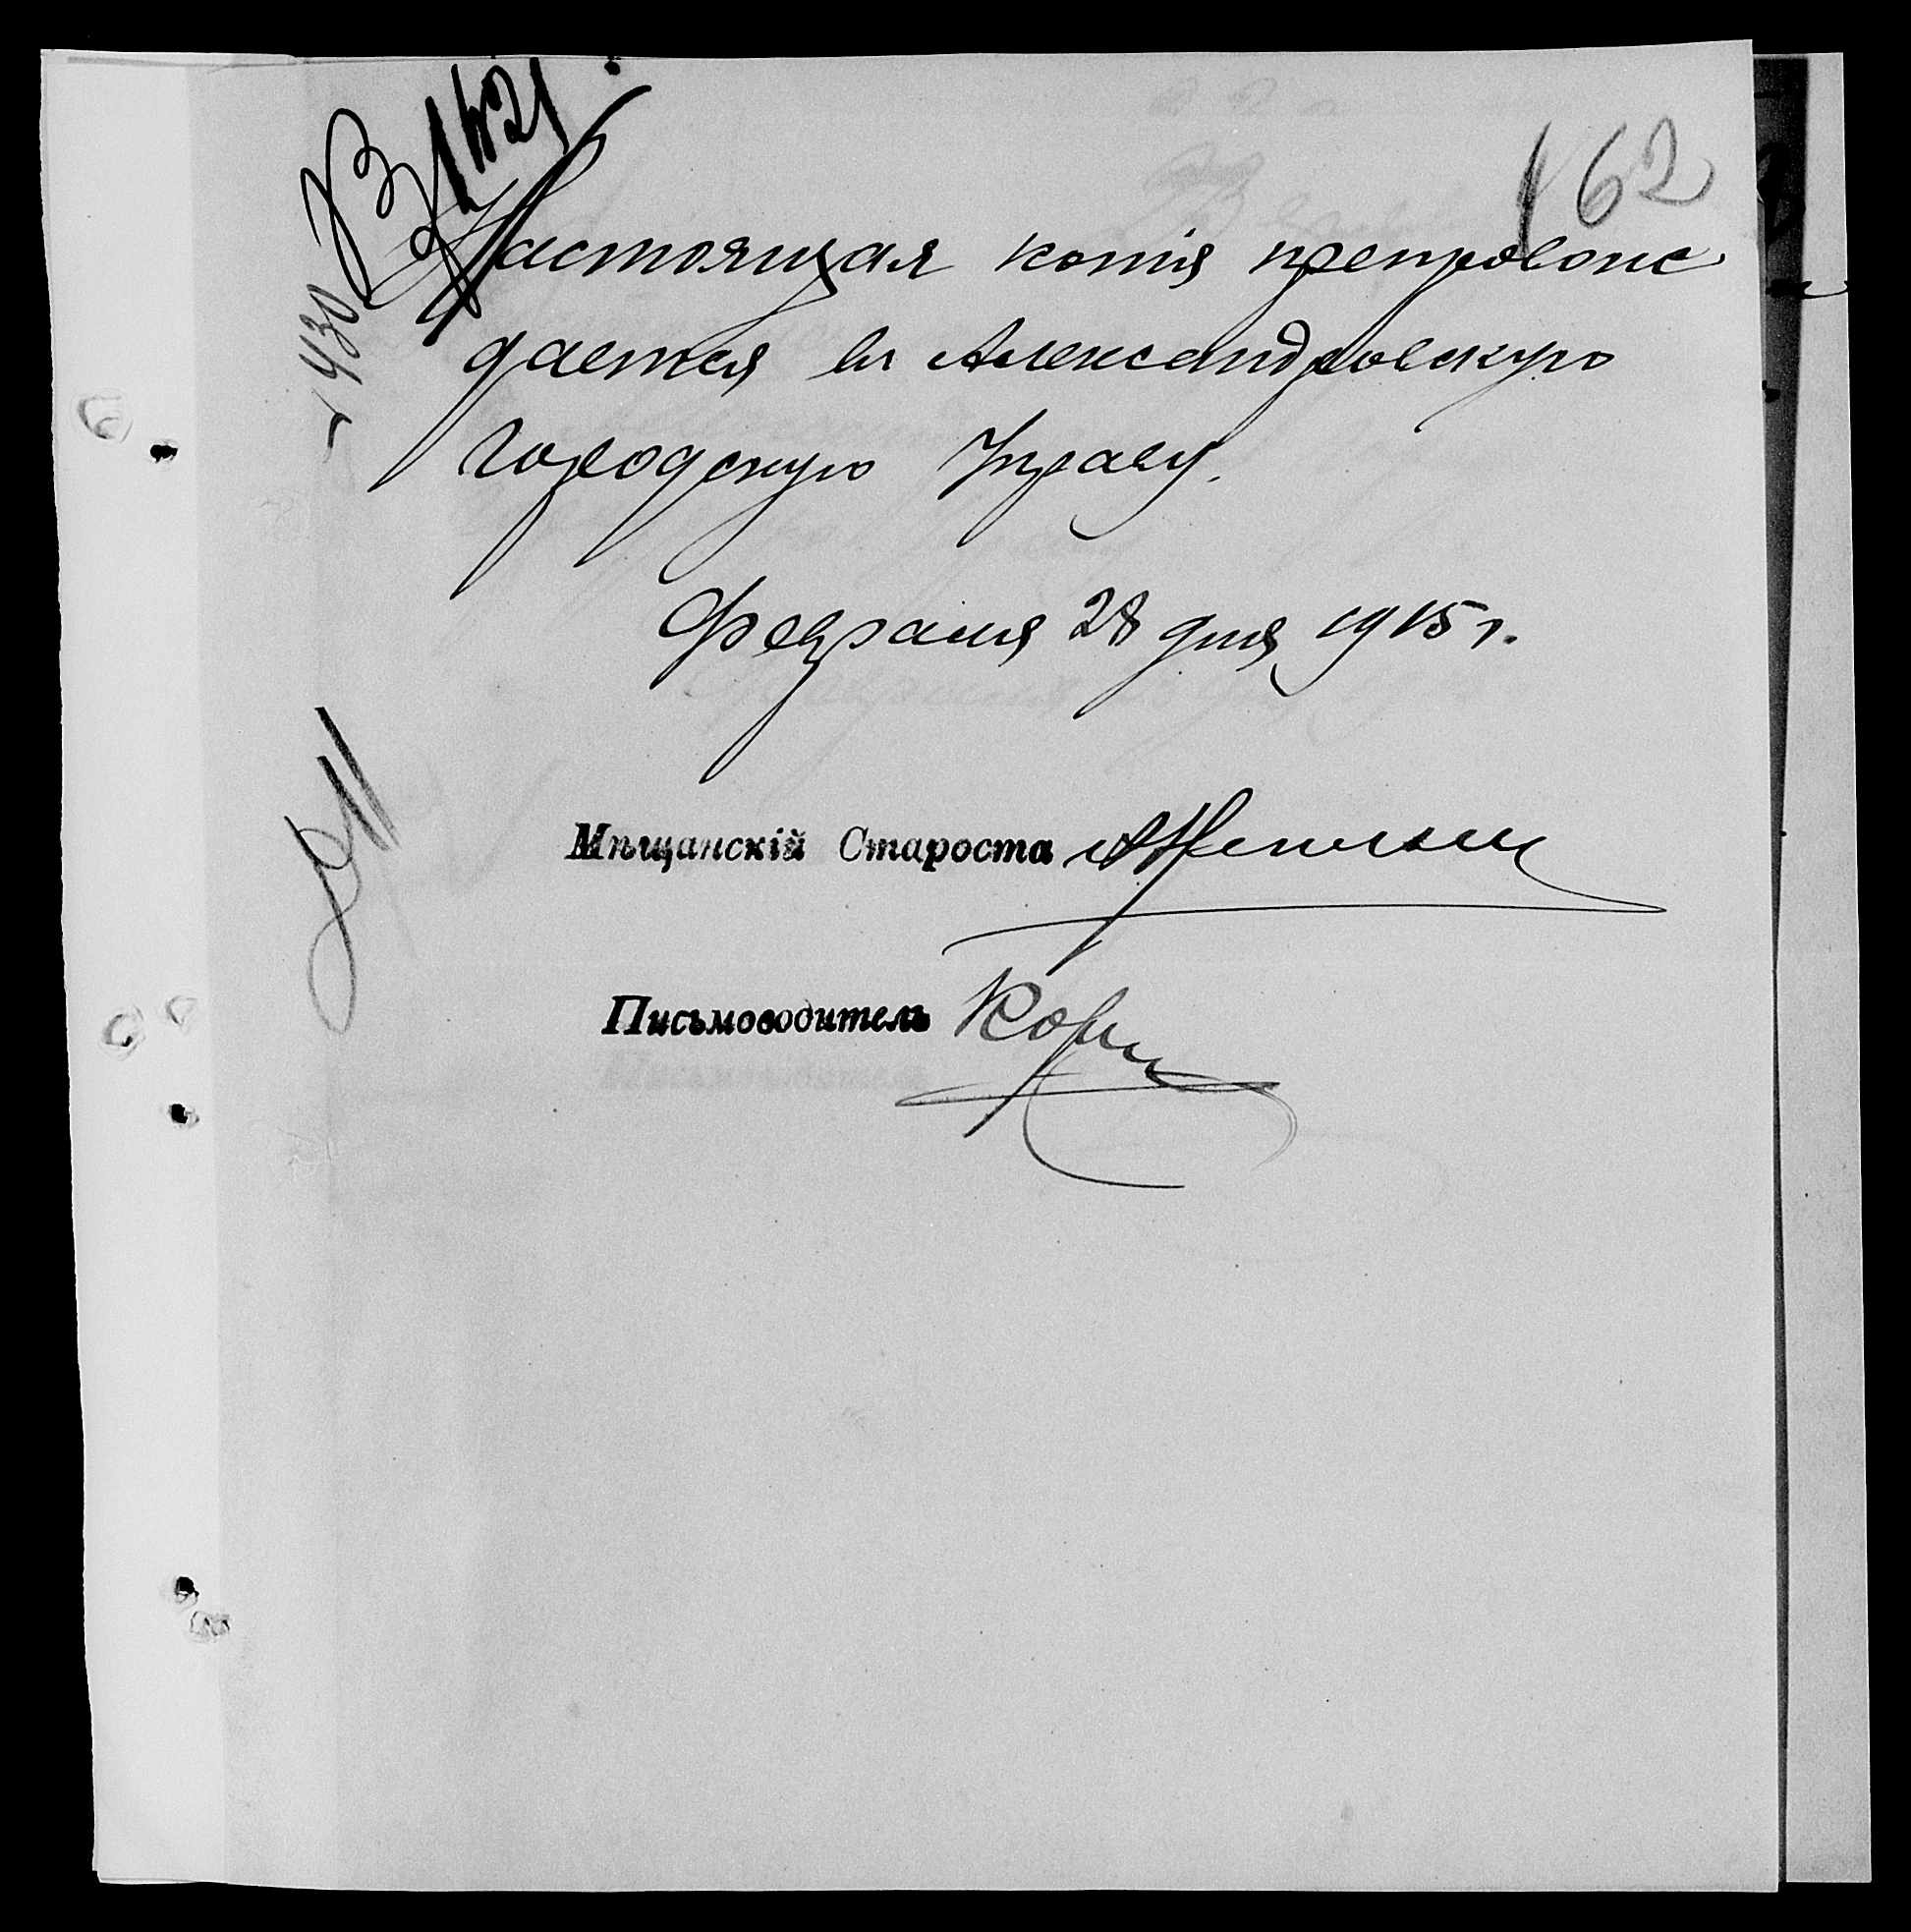 162
430
Настоящая копія препровож
дается въ Александровскую
Городскую Управу.
Февраля 28 дня 1915 г.
Мѣщанскій Староста
Письмоводитель